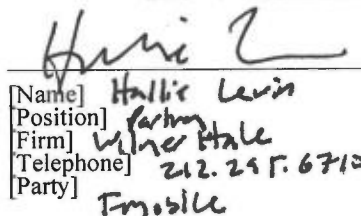 [Name] Hallie Levin
[Position] Partner
[Firm] Wilmer Hale
[Telephone] 212.295.6710
[Party]
T-mobile